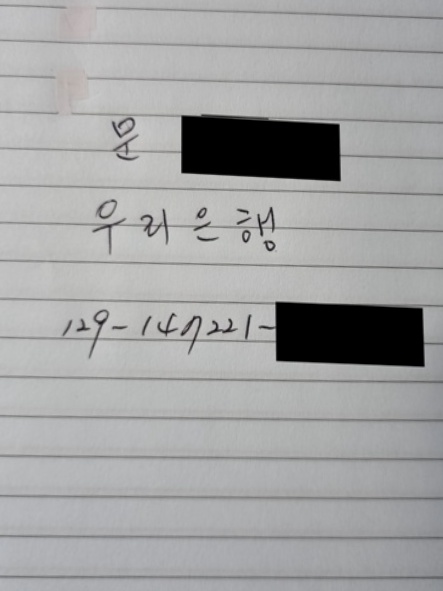 문
우리은행
129-147221-